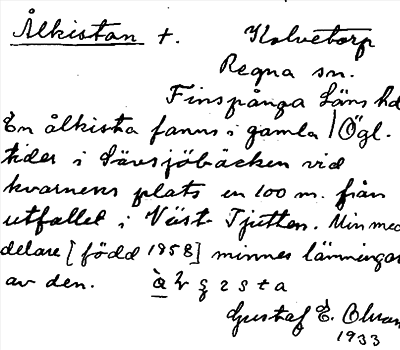 Ålkistan +. Kolvetorp
Regna sn.
Finspånga Läns hd
En ålkista fanns i gamla / Ögl.
tider i Sävsjöbäcken vid
kvarnens plats en 100 m. från
utfallet i Väst Tjutten. Min med
delare [född 1958] minnes lämningar
av den.
Gustaf E. Olsson
1933